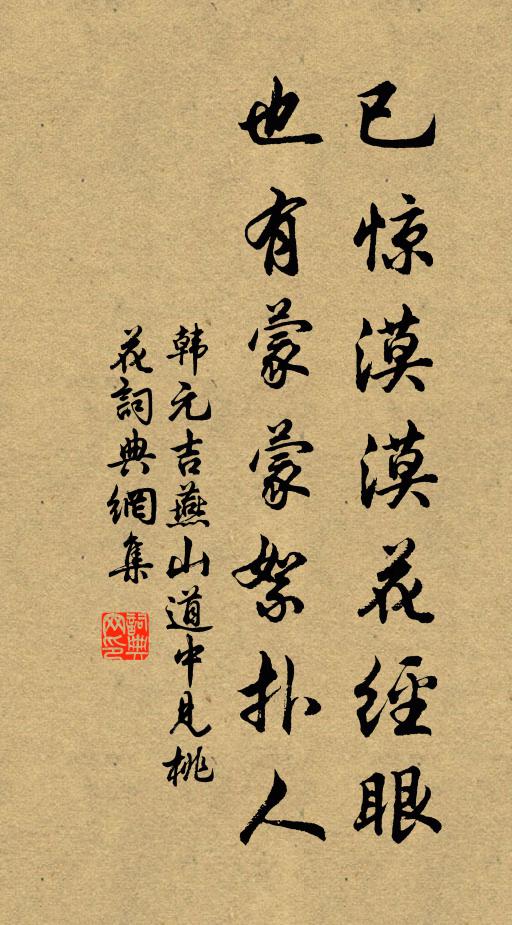 已惊漠漠花經眼
也有蒙蒙絮扑人
韩元吉燕山道中見桃
花詞典網集
詞典網印